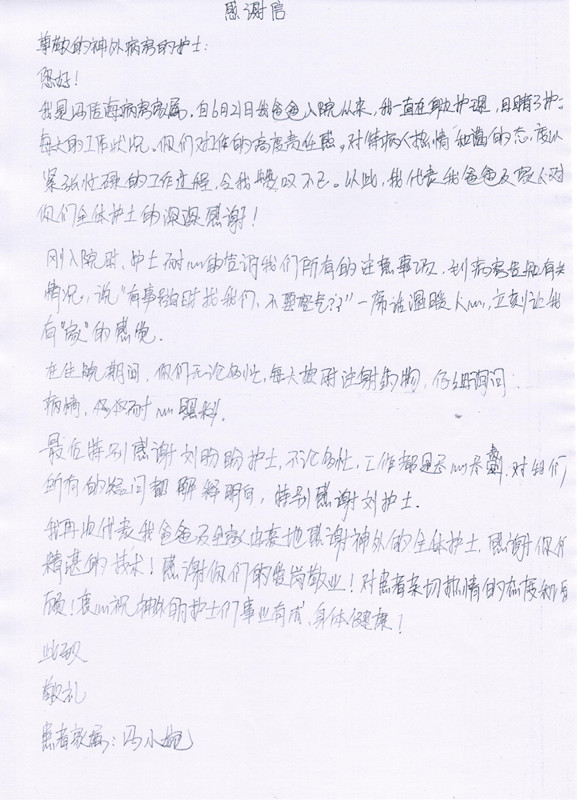 感谢信
尊敬的神外病房的护士：
您好！
我是冯 海病房家属，自6月21日我爸爸入院以来，我一直在身边护理，目睹了护士
每天的工作状况。你们对工作的高度责任感。对待病人热情和蔼的态度以
紧张忙碌的工作过程，令我赞叹不已。以此，我代表我爸爸及家人对
你们全体护士的深深感谢！
刚入院时，护士耐心的告诉我们所有的注意事项，到病房告知有关
情况，说“有事随时找我们、不要客气”一席话温暖人心，立刻让我
有“家”的感觉.
在住院期间，你们无论多忙，每天按时注射药物，仔细询问
病情，
最后特别感谢刘盼盼护士，不论多忙，工作都是尽心尽责，对我们
所有的疑问都解释明白，特别感谢刘护士.
我再次代表我爸爸及全家由衷地感谢神外的全体护士，感谢你们
精湛的技术！感谢你们的爱岗敬业！对患者亲切热情的态度和
顾！衷心祝 的护士们事业有成、身体健康！
此致
敬礼
患者家属：冯小